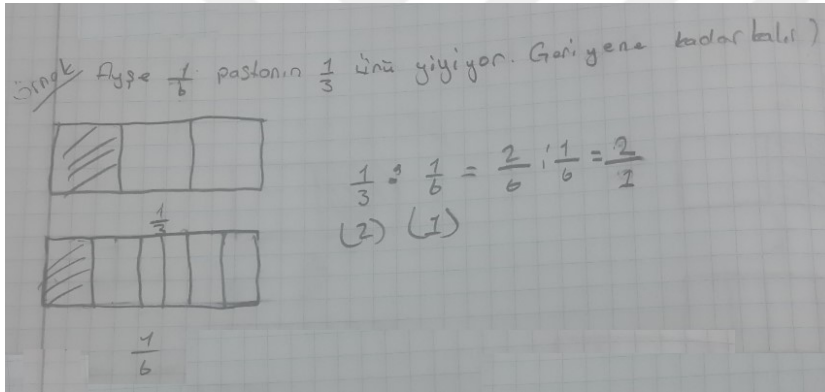 Örnek Ayşe 1/6 pastanın 1/3 ünü yiyiyor. Geriye ne kadar kalır?
1/3 : 1/6 = 2/6 : 1/6 = 2/1
(2) (1)
1/3
1/6